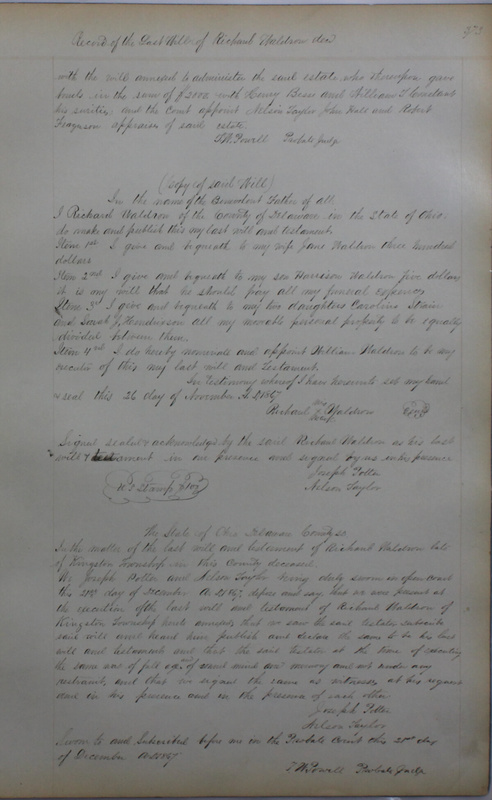 Record of the Last Will of Richard Waldron decd
with the will annexed to administer the said estate who thereupon gave
bonds in the sum of $2000 with Henry Beers and William T Constant
his sureties and the Court appoint Nelson Taylor John Hall and Robert
Ferguson appraisers of said estate.
T.W. Powell Probate Judge
(Copy of said Will)
In the name of the Benevolent Father of all.
I Richard Waldron of the County of Delaware in the State of Ohio
do make and publish this my last will and testament.
Item 1st I give and bequeath to my wife Jane Waldron three hundred
dollars
Item 2nd I give and bequeath to my son Harrison Waldron five dollars
it is my will that he should pay all my funeral expenses
Item 3d I give and bequeath to my two daughters Caroline
and Sarah J. Henderson all my movable personal property to be equally
divided between them.
Item 4th I do hereby nominate and appoint William Waldron to be my
executor of this my last will and Testament.
In Testimony whereof I have hereunto set my hand
& seal this 26 day of November AD 1867
Richard Waldron
Signed sealed & acknowledged by the said Richard Waldron as his last
will & testament in our presence and signed by us in his presence
Joseph Potter
Nelson Taylor
Stamp
The State of Ohio Delaware County ss.
In the matter of the last will and testament of Richard Waldron late
of Kingston Township in this County deceased.
We Joseph Potter and Nelson Taylor being duly sworn in open court
this 21st day of December AD 1867, depose and say, that we were present at
the execution of the last will and testament of Richard Waldron of
Kingston Township hereto annexed that we saw the said testator subscribe
said will and heard him publish and declare the same to be his last
will and testament and that the said testator at the time of executing
the same was of full age of sound mind and memory and not under any
restraint, and that we signed the same as witnesses at his request
and in his presence and in the presence of each other
Joseph Potter
Nelson Taylor
Sworn to and Subscribed before me in the Probate Court this 21st day
of December AD 1867
T.W. Powell Probate Judge